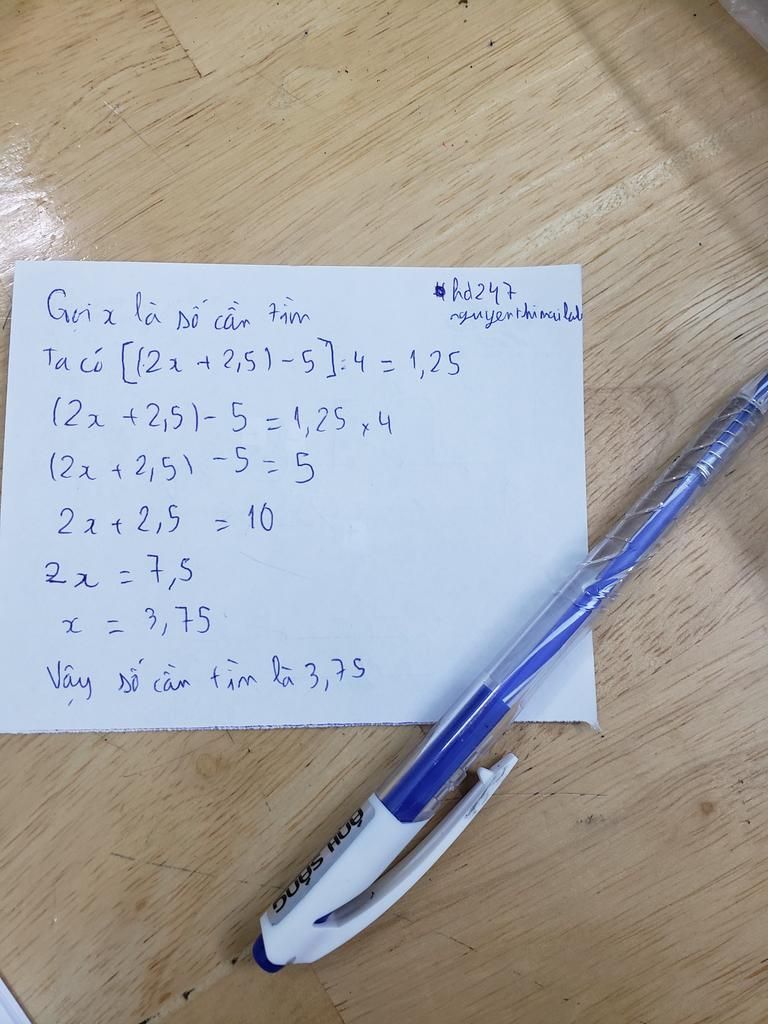 Gọi x là số cần tìm
*hd247
nguyenthimailab
Ta có [(2x + 2,5) - 5] : 4 = 1,25
(2x + 2,5) - 5 = 1,25 x 4
(2x + 2,5) - 5 = 5
2x + 2,5 = 10
2x = 7,5
x = 3,75
Vậy số cần tìm là 3,75